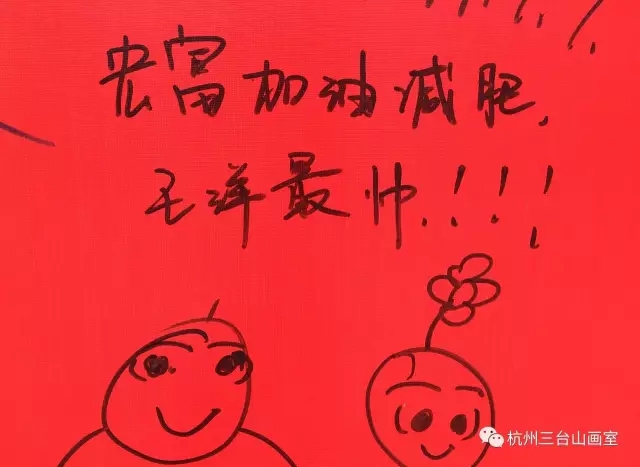 宏富加油减肥,
王洋最帅!!!!
杭州三台山画室